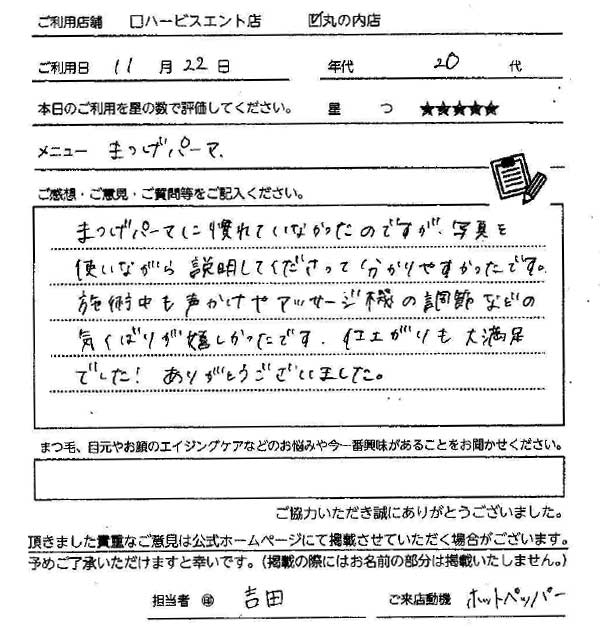 ご利用店舗 □ハービスエント店 ☑丸の内店
ご利用日 11 月 22 日 年代 20 代
本日のご利用を星の数で評価してください。 星 つ ★★★★★
メニュー まつげパーマ.
ご感想・ご意見・ご質問等をご記入ください。
まつげパーマに慣れていなかったのですが、写真を
使いながら説明してくださって分かりやすかったです。
施術中も声かけやマッサージ機の調節などの
気くばりが嬉しかったです. 仕上がりも大満足
でした! ありがとうございました。
まつ毛、目元やお顔のエイジングケアなどのお悩みや今一番興味があることをお聞かせください。
ご協力いただき誠にありがとうございました。
頂きました貴重なご意見は公式ホームページにて掲載させていただく場合がございます。
予めご了承いただけますと幸いです。(掲載の際にはお名前の部分は掲載いたしません。)
担当者 吉田 ご来店動機 ホットペッパー